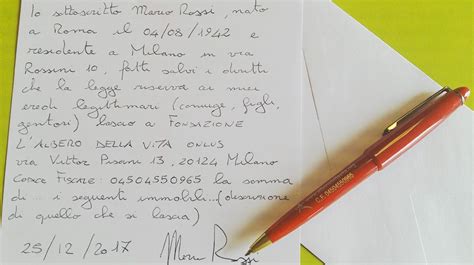 Io sottoscritto Mario Rossi, nato
a Roma il 04/08/1942 e
residente a Milano in via
Rossini 10, fatti salvi i diritti
che la legge riserva ai miei
eredi legittimari (coniuge, figli,
genitori) lascio a FONDAZIONE
L'ALBERO DELLA VITA ONLUS
via Vittor Pisani 13, 20124 Milano
CODICE FISCALE: 04504550965 la somma
di ... i seguenti immobili...(descrizione
di quello che si lascia)
25/12/2017 Mario Rossi
C.F. 04504550965